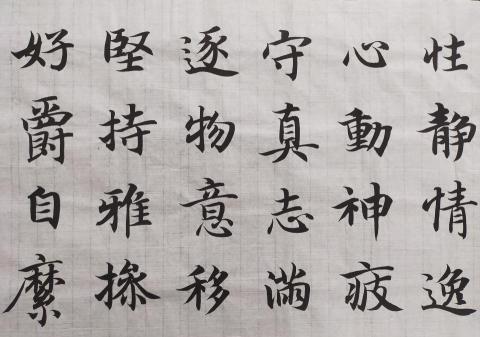 性静情逸
心動神疲
守真志滿
逐物意移
堅持雅操
好爵自縻